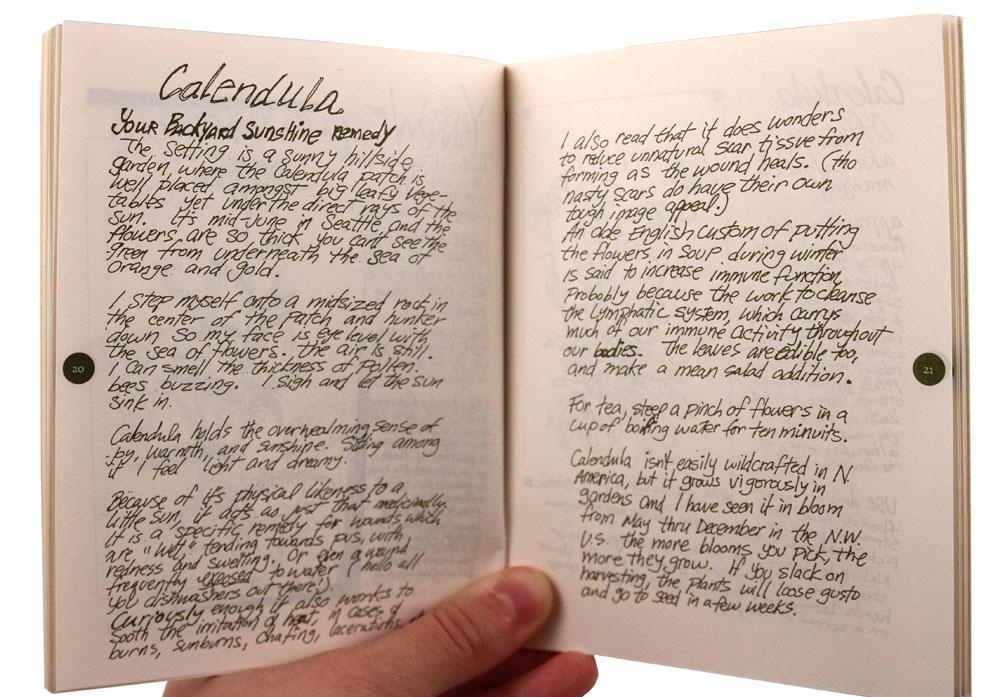 Calendula
Your Backyard Sunshine remedy
The setting is a sunny hillside
garden, where the Calendula patch is
well placed amongst big leafy vege-
tables yet under the direct rays of the
sun. It's mid-June in Seattle, and the
flowers are so thick you can't see the
green from underneath the sea of
orange and gold.
I step myself onto a midsized rock in
the center of the patch and hunker
down so my face is eye level with
the sea of flowers. the air is still.
I can smell the thickness of pollen.
bees buzzing. I sigh and let the sun
sink in.
Calendula holds the overwhealming sense of
joy, warmth, and sunshine. Sitting among
it I feel light and dreamy.
Because of it's physical likeness to a
little sun, it acts as just that medicinally.
It is a specific remedy for wounds which
are "wet," tending towards pus, with
redness and swelling. Or even a wound
frequently exposed to water (hello all
you dishwashers out there!)
Curiously enough it also works to
sooth the irritation of heat, in cases of
burns, sunburns, chafing, lacerations,
20
I also read that it does wonders
to reduce unnatural scar tissue from
forming as the wound heals. (tho
nasty scars do have their own
tough image appeal.)
An olde English custom of putting
the flowers in soup during winter
is said to increase immune function
Probobly because the work to cleanse
the lymphatic system, which carrys
much of our immune activity throughout
our bodies. The leaves are edible too,
and make a mean salad addition.
For tea, steep a pinch of flowers in a
cup of boiling water for ten minuits.
Calendula isn't easily wildcrafted in N.
America, but it grows vigorously in
gardens and I have seen it in bloom
from May thru December in the N.W.
U.S. the more blooms you pick, the
more they grow. If you slack on
harvesting, the plants will loose gusto
and go to seed in a few weeks.
21